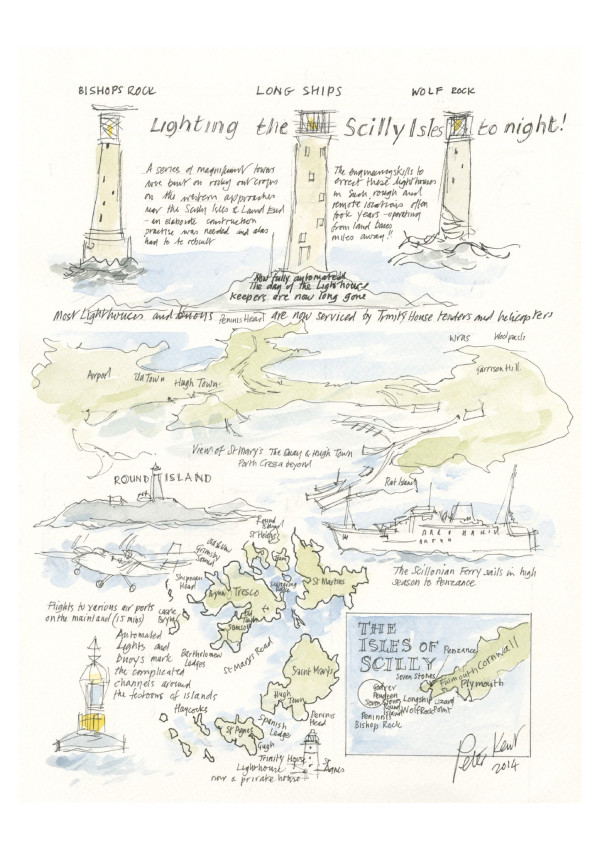 BISHOPS ROCK
LONG SHIPS
WOLF ROCK
Lighting the Scilly Isles to night!
A series of magnificent towers
were built on rocky out crops
on the western approaches
near the Scilly Isles & Land End
- an elaborate construction
practice was needed and also
had to be rebuilt
The engineering skills to
erect these lighthouses
in such rough and
remote locations often
took years - operating
from land bases
miles away!!
Now fully automated
The day of the Lighthouse
keepers are now long gone
Most Lighthouses and buoys are now serviced by Trinity House tenders and helicopters
Pennis Head
Wras
Woolpack
Airport
Old Town
Hugh Town
Garrison Hill
View of St Mary's The Quay & Hugh Town
Porth Cressa beyond
ROUND ISLAND
Rat Island
The Scillonian Ferry sails in high
season to Penzance
Round Island
St Helens
Old Grimsby Sound
Shipman Head
Bryher
Tresco
St Martins
Samson
Flights to various air ports
on the mainland (15 mins)
Automated
Lights and
buoys mark
the complicated
channels around
the footoms of islands
Bartholomew
Ledges
St Marys Road
Saint Marys
Hugh
Town
Peninnis
Head
Haycocks
St Agnes
Gugh
Spanish
Ledges
Trinity House
Lighthouse
now a private house
St Agnes
THE
ISLES OF
SCILLY
Seven Stones
Penzance
Falmouth
Cornwall
Plymouth
Longship
Lizard
Wolf Rock
Point
Round
Island
Peninnis
Bishop Rock
Peter Kent
2014